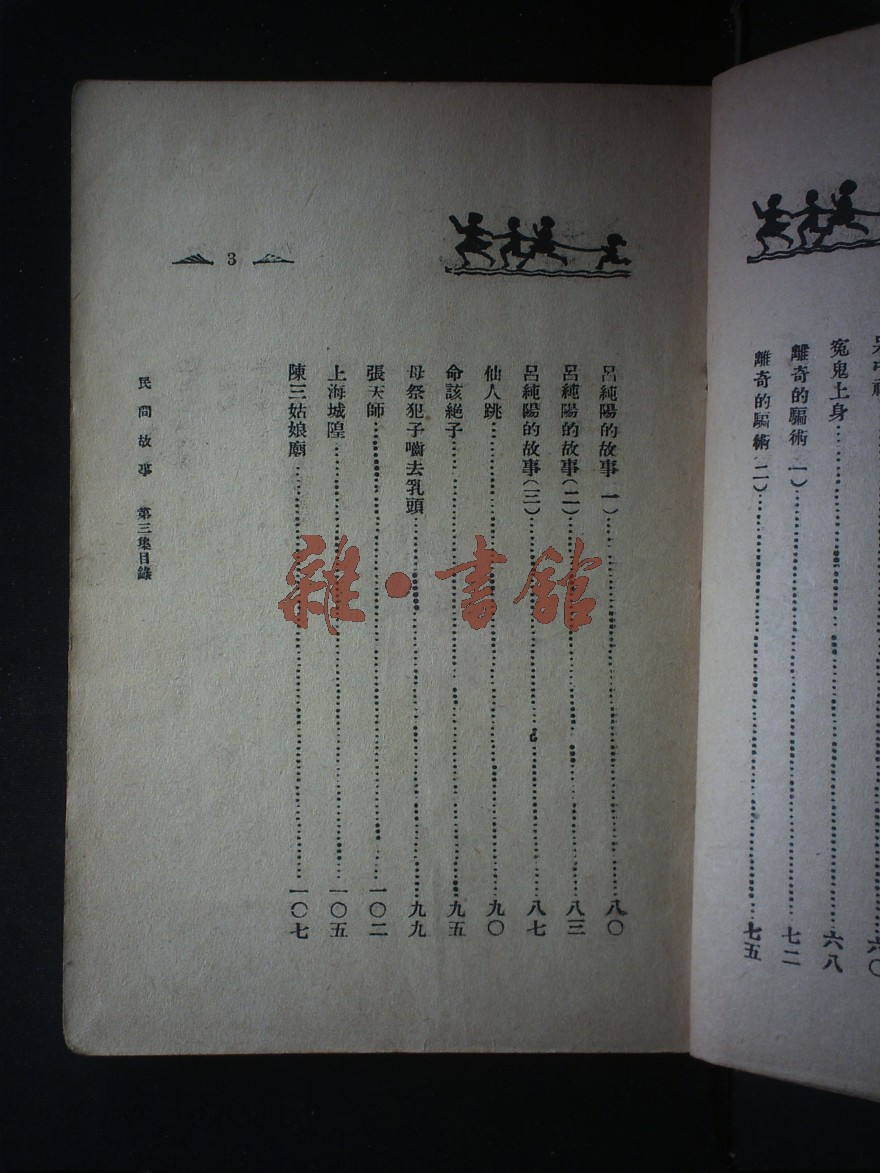 冤鬼上身……六八
離奇的騙術(一)……七二
離奇的騙術(二)……七五
呂純陽的故事(一)……八〇
呂純陽的故事(二)……八三
呂純陽的故事(三)……八七
仙人跳……九〇
命該絕子……九五
母祭犯子嚙去乳頭……九九
張天師……一〇二
上海城隍……一〇五
陳三姑娘廟……一〇七
民間故事 第三集目錄
3
雜·書館